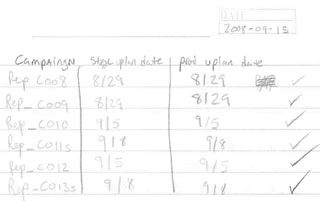 DATE
2008-09-15
CampaignN stage uplan date prod uplan date
Rep_C008 8/29 8/29 ✓
Rep_C009 8/29 8/29 ✓
Rep_C010 9/5 9/5 ✓
Rep_C011s 9/8 9/8 ✓
Rep_C012 9/5 9/5 ✓
Rep_C013s 9/8 9/8 ✓